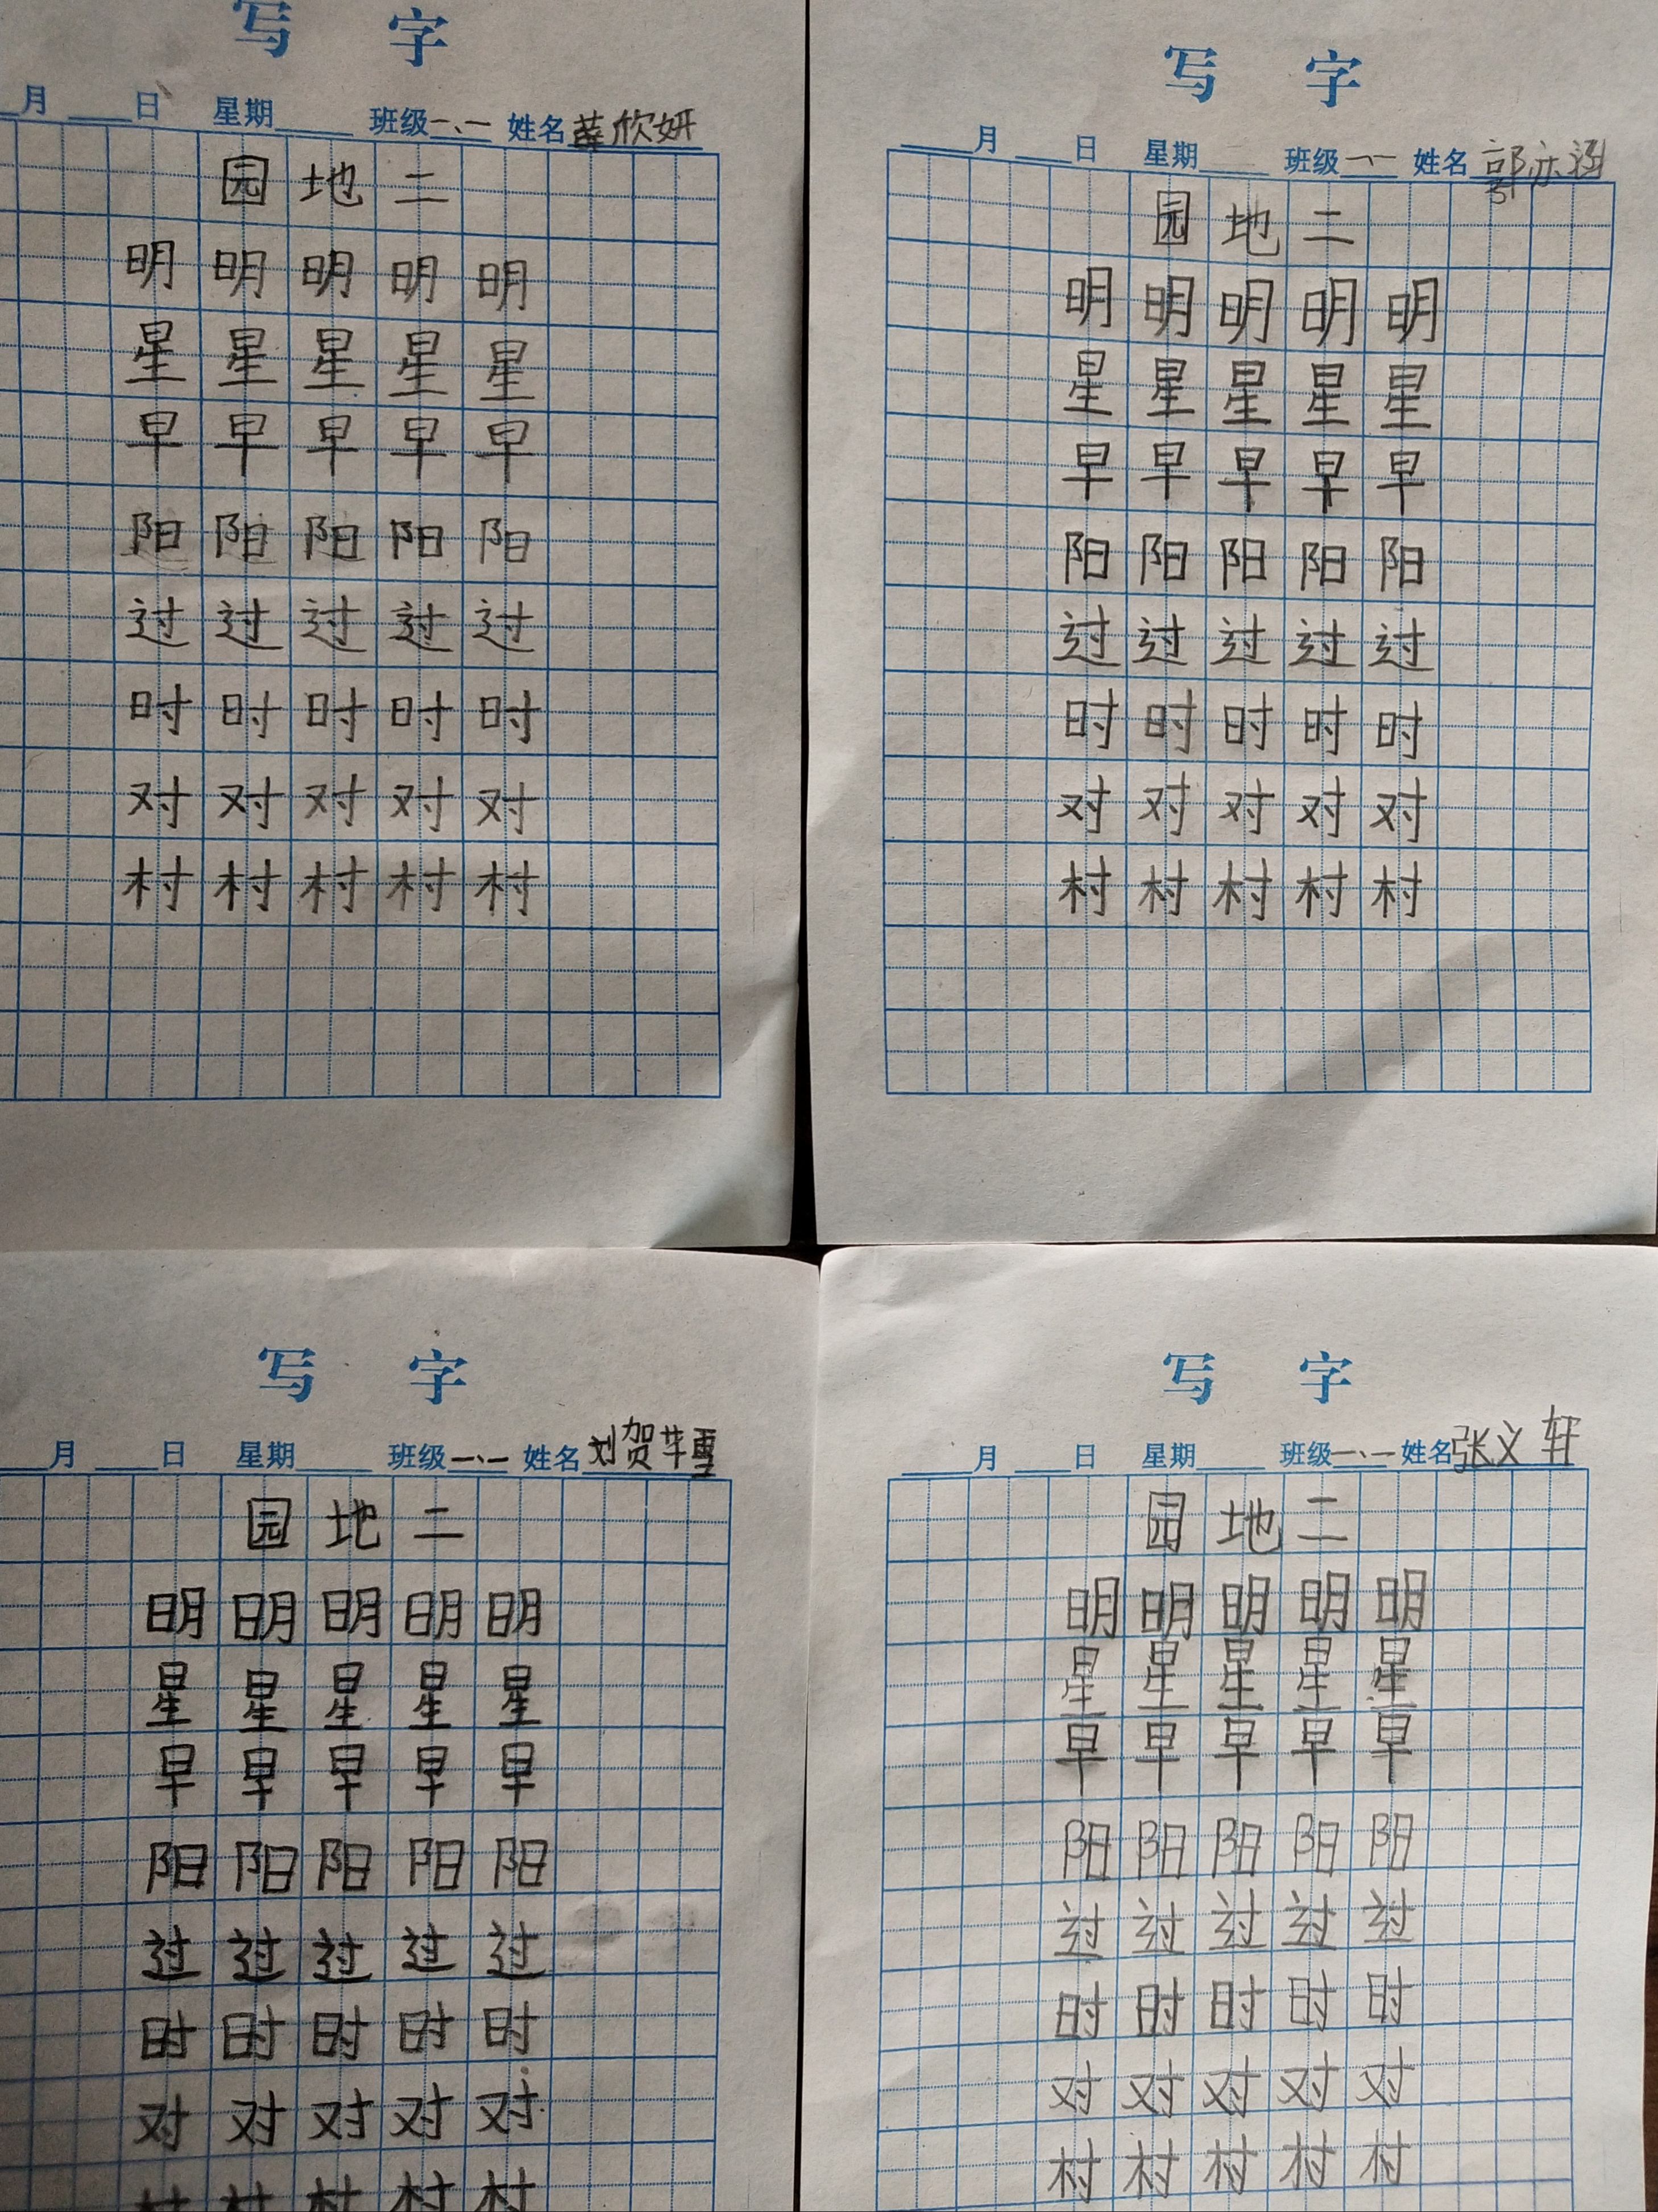 写 字
月 日 星期 班级 一、一 姓名 薛欣妍
园 地 二
明 明 明 明 明
星 星 星 星 星
早 早 早 早 早
阳 阳 阳 阳 阳
过 过 过 过 过
时 时 时 时 时
对 对 对 对 对
村 村 村 村 村
写 字
月 日 星期 班级 一、一 姓名 郭亦涵
园 地 二
明 明 明 明 明
星 星 星 星 星
早 早 早 早 早
阳 阳 阳 阳 阳
过 过 过 过 过
时 时 时 时 时
对 对 对 对 对
村 村 村 村 村
写 字
月 日 星期 班级 一、一 姓名 刘贺雪
园 地 二
明 明 明 明 明
星 星 星 星 星
早 早 早 早 早
阳 阳 阳 阳 阳
过 过 过 过 过
时 时 时 时 时
对 对 对 对 对
村 村 村 村 村
写 字
月 日 星期 班级 一、一 姓名 张义轩
园 地 二
明 明 明 明 明
星 星 星 星 星
早 早 早 早 早
阳 阳 阳 阳 阳
过 过 过 过 过
时 时 时 时 时
对 对 对 对 对
村 村 村 村 村